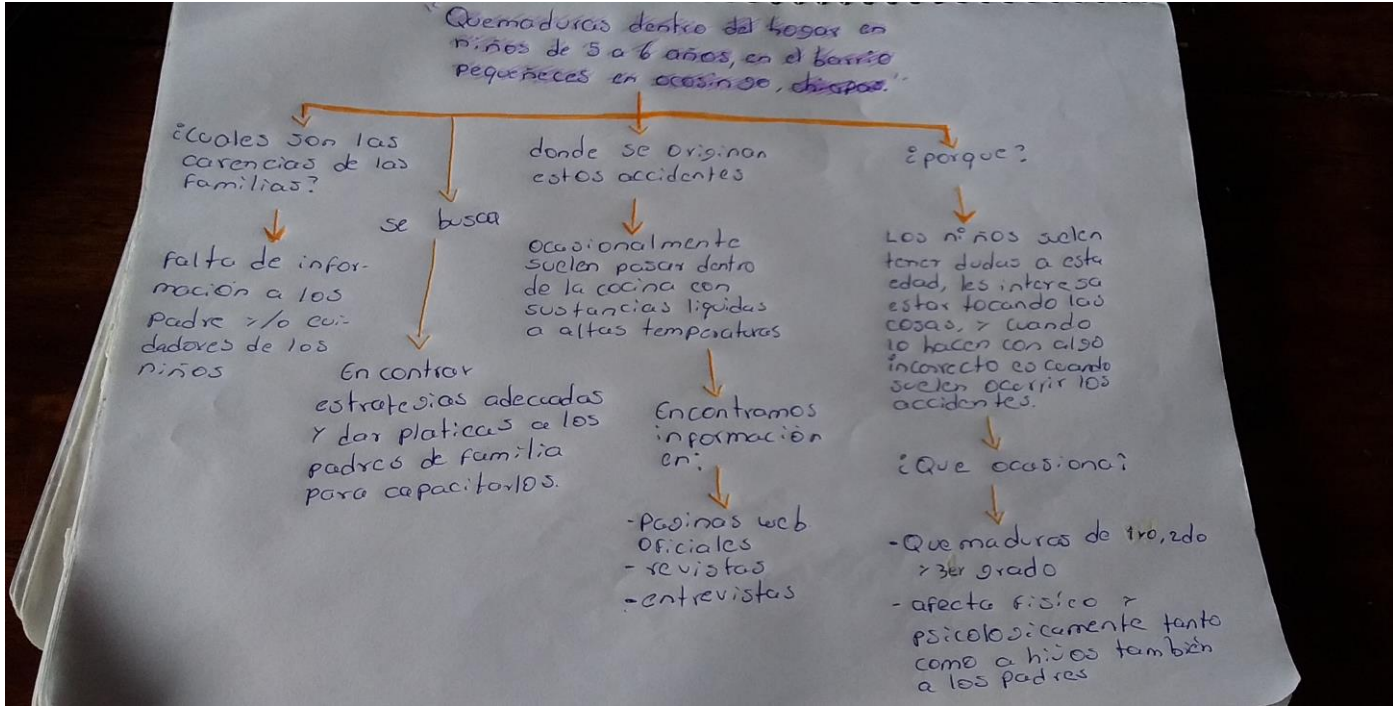 "Quemaduras dentro del hogar en
niños de 5 a 6 años, en el barrio
pequeñeces en ocosingo, chiapas."
¿Cuales son las
carencias de las
familias?
falta de infor-
mación a los
padre y/o cui-
dadores de los
niños
se busca
Encontrar
estrategias adecuadas
y dar platicas a los
padres de familia
para capacitarlos.
donde se originan
estos accidentes
ocasionalmente
suelen pasar dentro
de la cocina con
sustancias liquidas
a altas temperaturas
Encontramos
información
en:
-Paginas web
oficiales
- revistas
- entrevistas
¿porque?
Los niños suelen
tener dudas a esta
edad, les interesa
estar tocando las
cosas, y cuando
lo hacen con algo
incorrecto es cuando
suelen ocurrir los
accidentes.
¿Que ocasiona?
-Quemaduras de 1ro, 2do
y 3er grado
- afecta fisico y
psicologicamente tanto
como a hijos también
a los padres